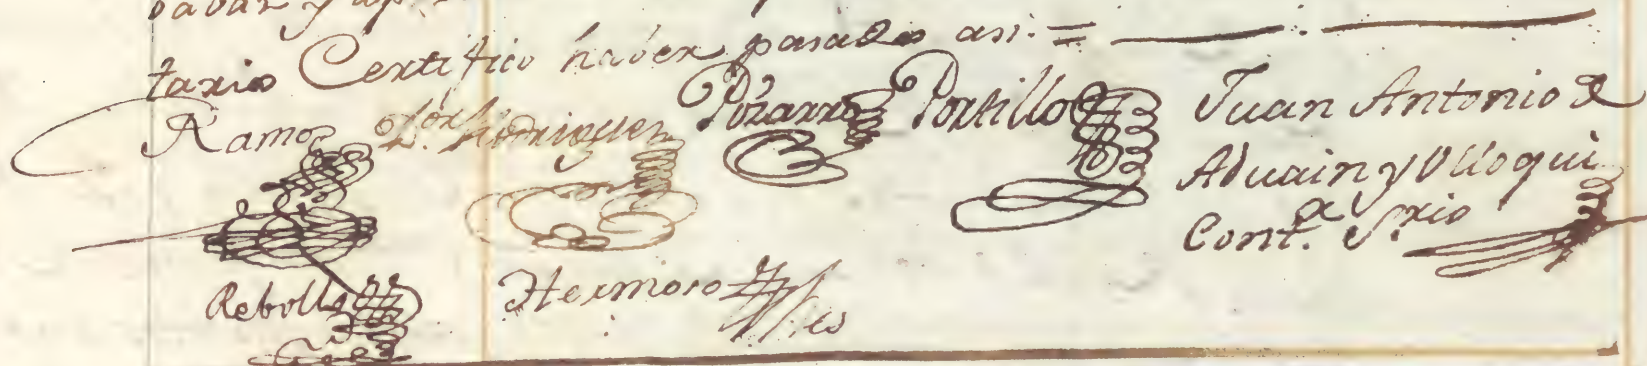 tario Certifico haver pasado asi. =
Ramos Domingues Pizarro Portillo Juan Antonio de
Aduain y Ulloqui
Cont.r S.rio
Rebollo Hermoso